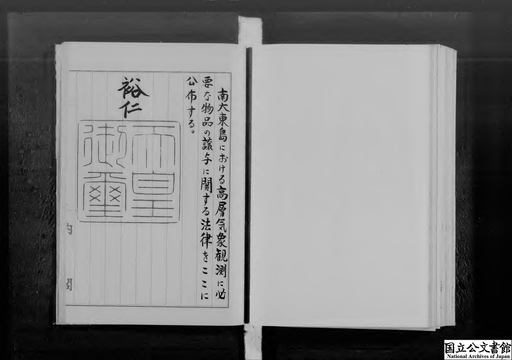 南大東島における高層気象観測に必
要な物品の譲与に関する法律をここに
公布する。
裕仁
天皇
御璽
国立公文書館
National Archives of Japan